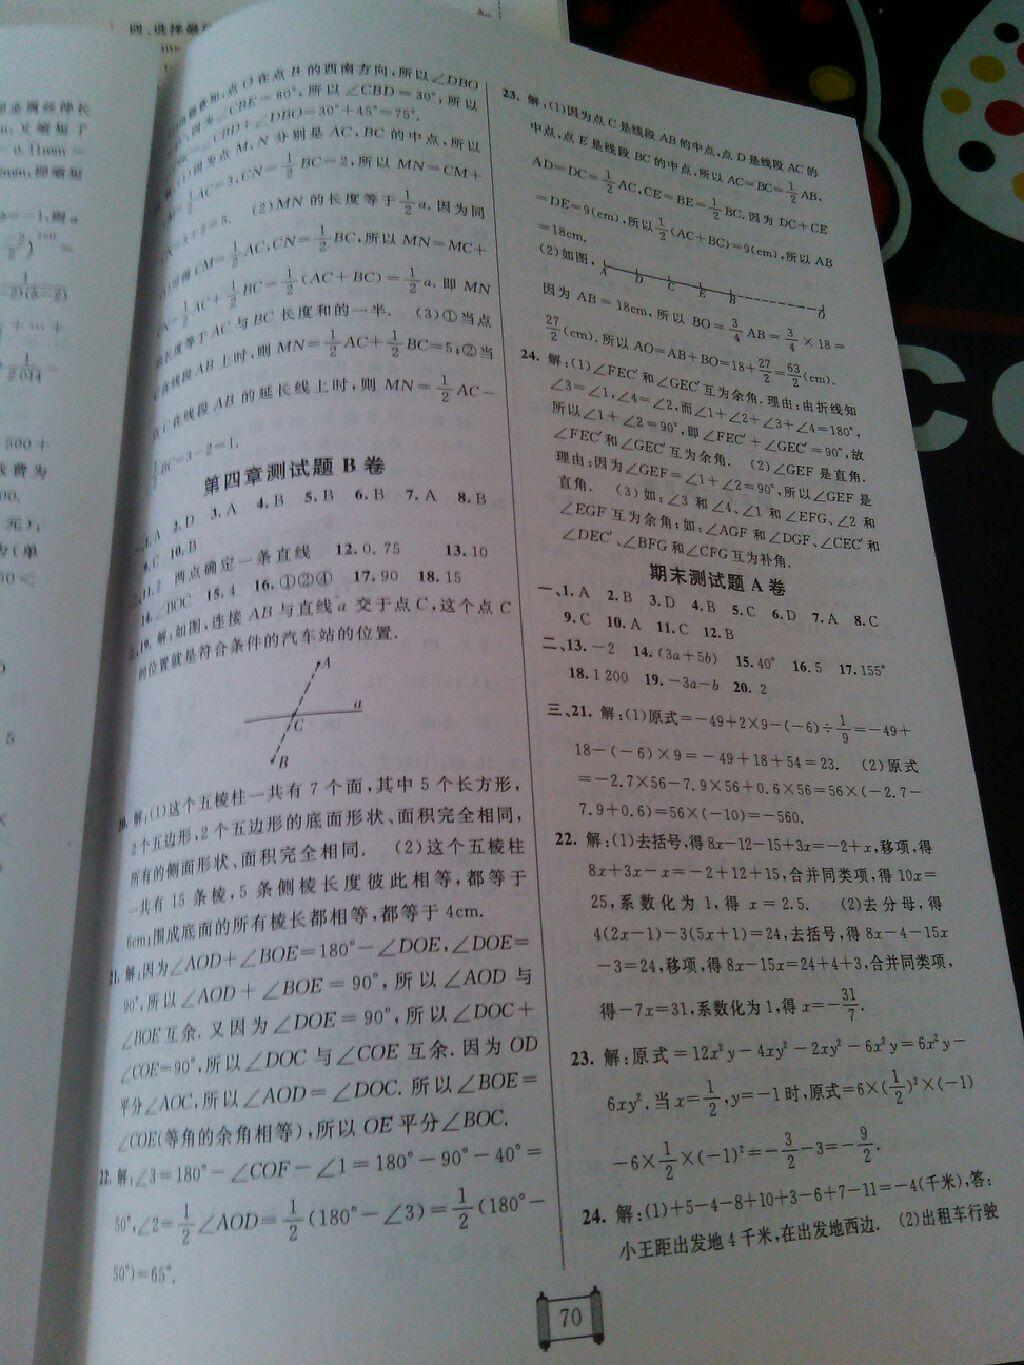 四、选择最
点O在点B的西南方向,所以∠DBO
因为∠CBE=60°,所以∠CBD=30°,所以
∠CBD+∠DBO=30°+45°=75°.
因为点M、N分别是AC、BC的中点,所以
AC=3,CN=1/2BC=2,所以MN=CM+
=3+2=5. (2)MN的长度等于1/2a,因为同
可得CM=1/2AC,CN=1/2BC,所以MN=MC+
CN=1/2AC+1/2BC=1/2(AC+BC)=1/2a,即MN
的长度等于AC与BC长度和的一半. (3)①当点
在线段AB上时,则MN=1/2AC+1/2BC=5;②当
点C在线段AB的延长线上时,则MN=1/2AC-
1/2BC=3-2=1.
第四章测试题B卷
一、1.A 2.D 3.A 4.B 5.B 6.B 7.A 8.B
9.C 10.B
二、11.2 两点确定一条直线 12.0.75 13.10
14.∠BOC 15.4 16.①②④ 17.90 18.15
三、19.解:如图,连接AB与直线a交于点C,这个点C
的位置就是符合条件的汽车站的位置.
A
a
C
B
20.解:(1)这个五棱柱一共有7个面,其中5个长方形,
2个五边形,2个五边形的底面形状、面积完全相同,
所有的侧面形状、面积完全相同. (2)这个五棱柱
一共有15条棱,5条侧棱长度彼此相等,都等于
6cm;围成底面的所有棱长都相等,都等于4cm.
21.解:因为∠AOD+∠BOE=180°-∠DOE,∠DOE=
90°,所以∠AOD+∠BOE=90°,所以∠AOD与
∠BOE互余.又因为∠DOE=90°,所以∠DOC+
∠COE=90°,所以∠DOC与∠COE互余.因为OD
平分∠AOC,所以∠AOD=∠DOC.所以∠BOE=
∠COE(等角的余角相等),所以OE平分∠BOC.
22.解:∠3=180°-∠COF-∠1=180°-90°-40°=
50°,∠2=1/2∠AOD=1/2(180°-∠3)=1/2(180°-
50°)=65°.
23.解:(1)因为点C是线段AB的中点,点D是线段AC的
中点,点E是线段BC的中点,所以AC=BC=1/2AB,
AD=DC=1/2AC,CE=BE=1/2BC.因为DC+CE
=DE=9(cm),所以1/2(AC+BC)=9(cm),所以AB
=18cm.
(2)如图,
A D C E B O
因为AB=18cm,所以BO=3/4AB=3/4×18=
27/2(cm).所以AO=AB+BO=18+27/2=63/2(cm).
24.解:(1)∠FEC′和∠GEC′互为余角.理由:由折线知
∠3=∠1,∠4=∠2,而∠1+∠2+∠3+∠4=180°,
所以∠1+∠2=90°,即∠FEC′+∠GEC′=90°,故
∠FEC′和∠GEC′互为余角. (2)∠GEF是直角.
理由:因为∠GEF=∠1+∠2=90°,所以∠GEF是
直角. (3)如:∠3和∠4、∠1和∠EFG、∠2和
∠EGF互为余角;如:∠AGF和∠DGF、∠CEC′和
∠DEC′、∠BFG和∠CFG互为补角.
期末测试题A卷
一、1.A 2.B 3.D 4.B 5.C 6.D 7.A 8.C
9.C 10.A 11.C 12.B
二、13.-2 14.(3a+5b) 15.40° 16.5 17.155°
18.1 200 19.-3a-b 20.2
三、21.解:(1)原式=-49+2×9-(-6)÷1/9=-49+
18-(-6)×9=-49+18+54=23. (2)原式
=-2.7×56-7.9×56+0.6×56=56×(-2.7-
7.9+0.6)=56×(-10)=-560.
22.解:(1)去括号,得8x-12-15+3x=-2+x,移项,得
8x+3x-x=-2+12+15,合并同类项,得10x=
25,系数化为1,得x=2.5. (2)去分母,得
4(2x-1)-3(5x+1)=24,去括号,得8x-4-15x
-3=24,移项,得8x-15x=24+4+3,合并同类项,
得-7x=31,系数化为1,得x=-31/7.
23.解:原式=12x²y-4xy²-2xy²-6x²y=6x²y-
6xy².当x=1/2,y=-1时,原式=6×(1/2)²×(-1)
-6×1/2×(-1)²=-3/2-3=-9/2.
24.解:(1)+5-4-8+10+3-6+7-11=-4(千米),答:
小王距出发地4千米,在出发地西边. (2)出租车行驶
70